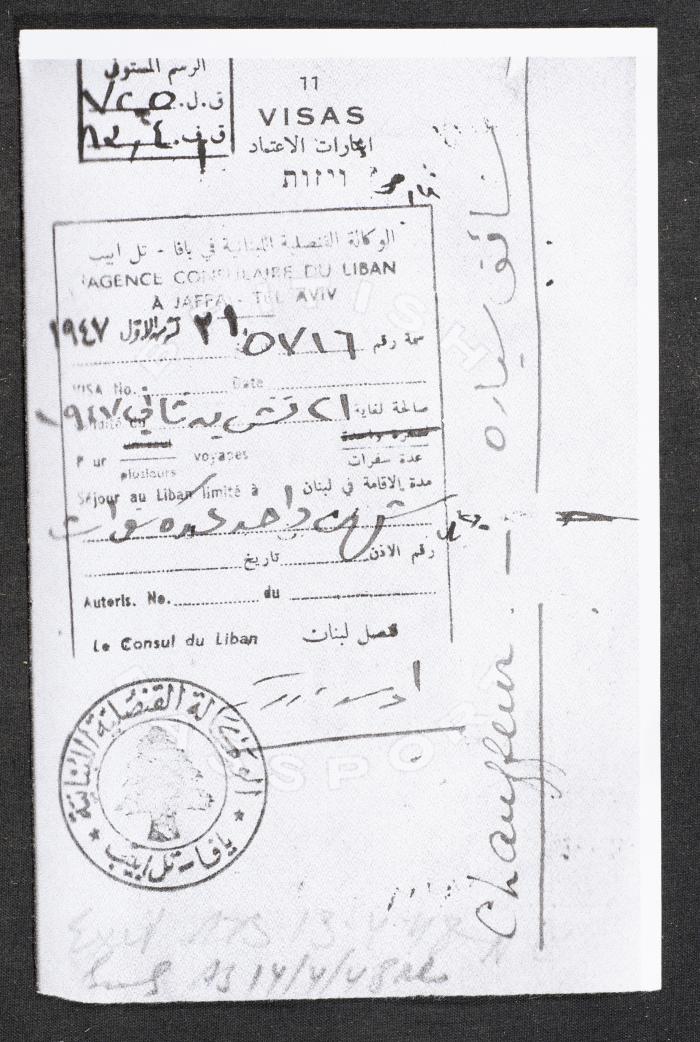 الرسم المستوفى
ق.ل. ٧٢٥
ق.ف.
11
VISAS
اجازات الاعتماد
ויזות
الوكالة القنصلية اللبنانية في يافا - تل ابيب
AGENCE CONSULAIRE DU LIBAN
A JAFFA - TEL AVIV
سمة رقم ٥٧١٦ ٢١ تشرين الاول ١٩٤٧
VISA No. Date
صالحة لغاية ٢١ تشرين ثاني ١٩٤٧
Validité du
Pour voyages
plusieurs
عدة سفرات
Séjour au Liban limité à
مدة الاقامة في لبنان
شهر واحد عدة سفرات
رقم الاذن تاريخ
Autoris. No. du
Le Consul du Liban
قنصل لبنان
الوكالة القنصلية اللبنانية
يافا - تل ابيب
BRITISH
PASSPORT
سائق سياره
Chauffeur
Exit 13-4-48
14/4/48